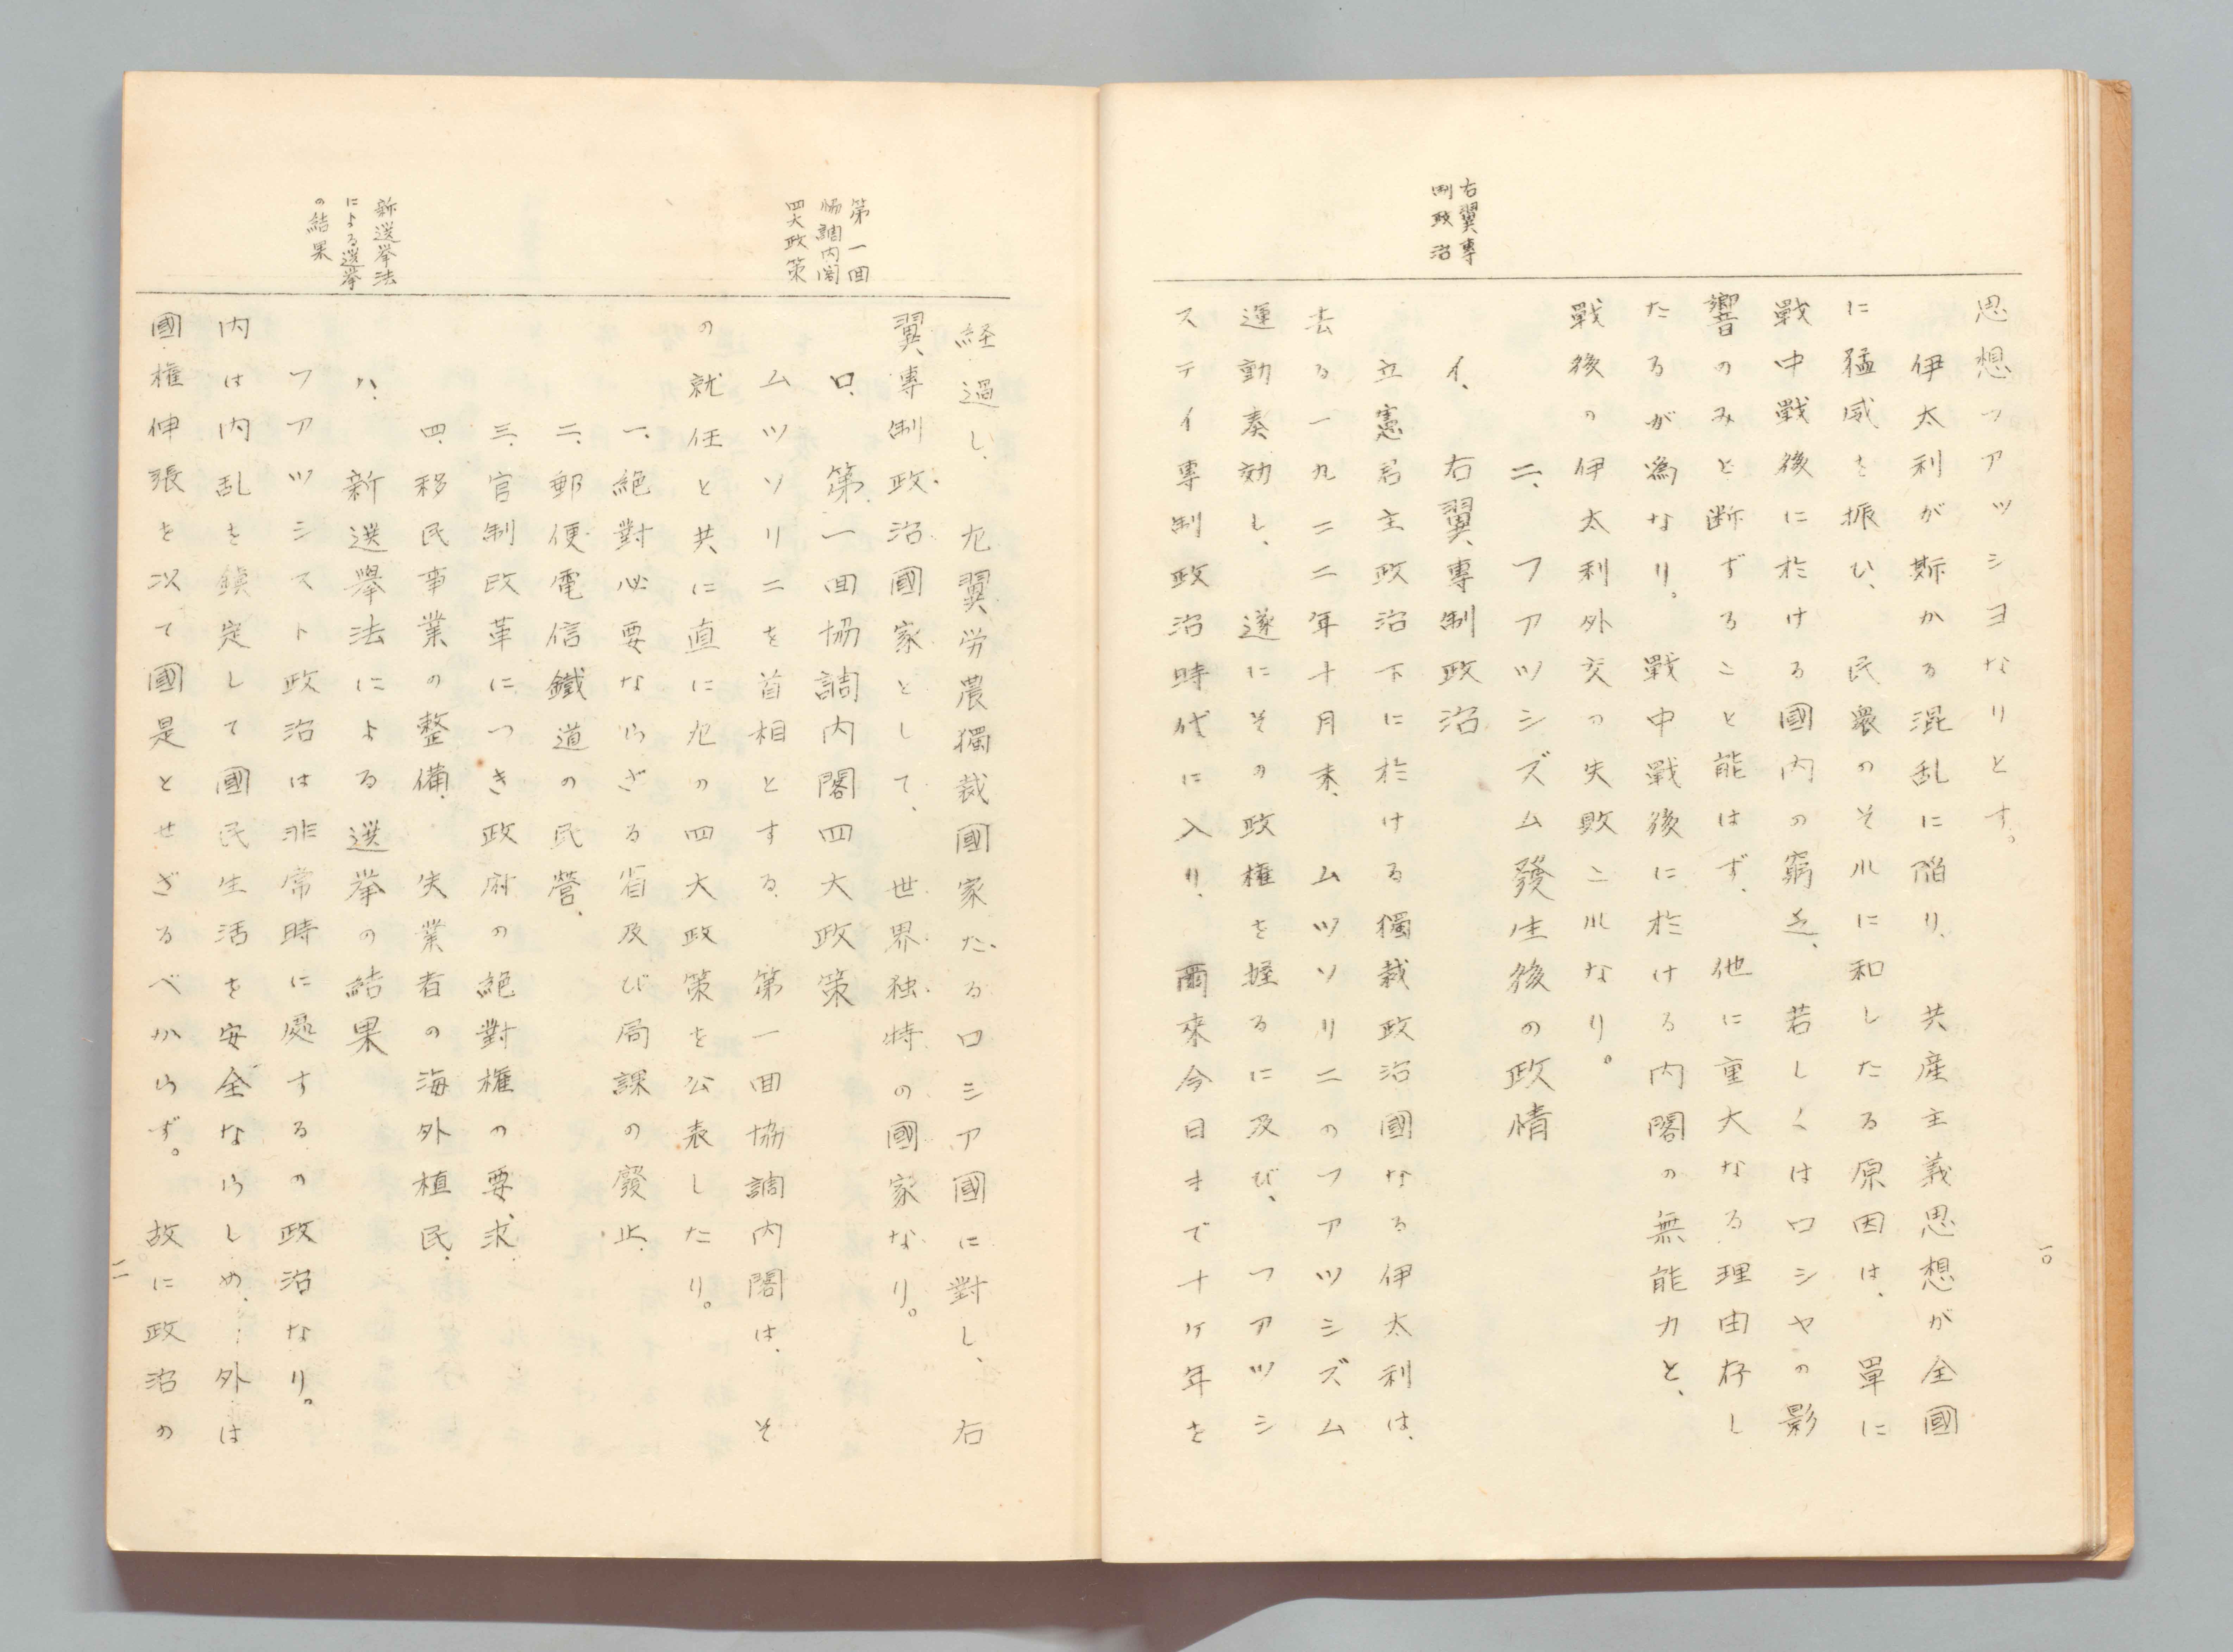 思想フアツシヨなりとす。
伊太利が斯かる混乱に陥り、共産主義思想が全國
に猛威を振ひ、民衆のそれに和したる原因は、單に
戦中戦後に於ける國内の窮乏、若しくはロシヤの影
響のみと断ずること能はず、他に重大なる理由存し
たるが爲なり。戦中戦後に於ける内閣の無能力と、
戦後の伊太利外交の失敗これなり。
二、フアツシズム發生後の政情
右翼專
制政治
イ、右翼專制政治
立憲君主政治下に於ける獨裁政治國なる伊太利は、
去る一九二二年十月末、ムツソリニのフアツシズム
運動奏効し、遂にその政権を握るに及び、フアツシ
ステイ專制政治時代に入り、爾來今日まで十ケ年を
一〇
経過し、左翼労農獨裁國家たるロシア國に對し、右
翼專制政治國家として、世界独特の國家なり。
第一回
協調内閣
四大政策
ロ、第一回協調内閣四大政策
ムツソリニを首相とする、第一回協調内閣は、そ
の就任と共に直に左の四大政策を公表したり。
一、絶對必要ならざる省及び局課の廢止、
二、郵便電信鐵道の民營、
三、官制改革につき政府の絶對權の要求、
四、移民事業の整備、失業者の海外植民、
新選挙法
による選挙
の結果
ハ、新選擧法による選挙の結果
フアツシスト政治は非常時に處するの政治なり。
内は内乱を鎮定して國民生活を安全ならしめ、外は
國権伸張を以て國是とせざるべからず。故に政治の
一一